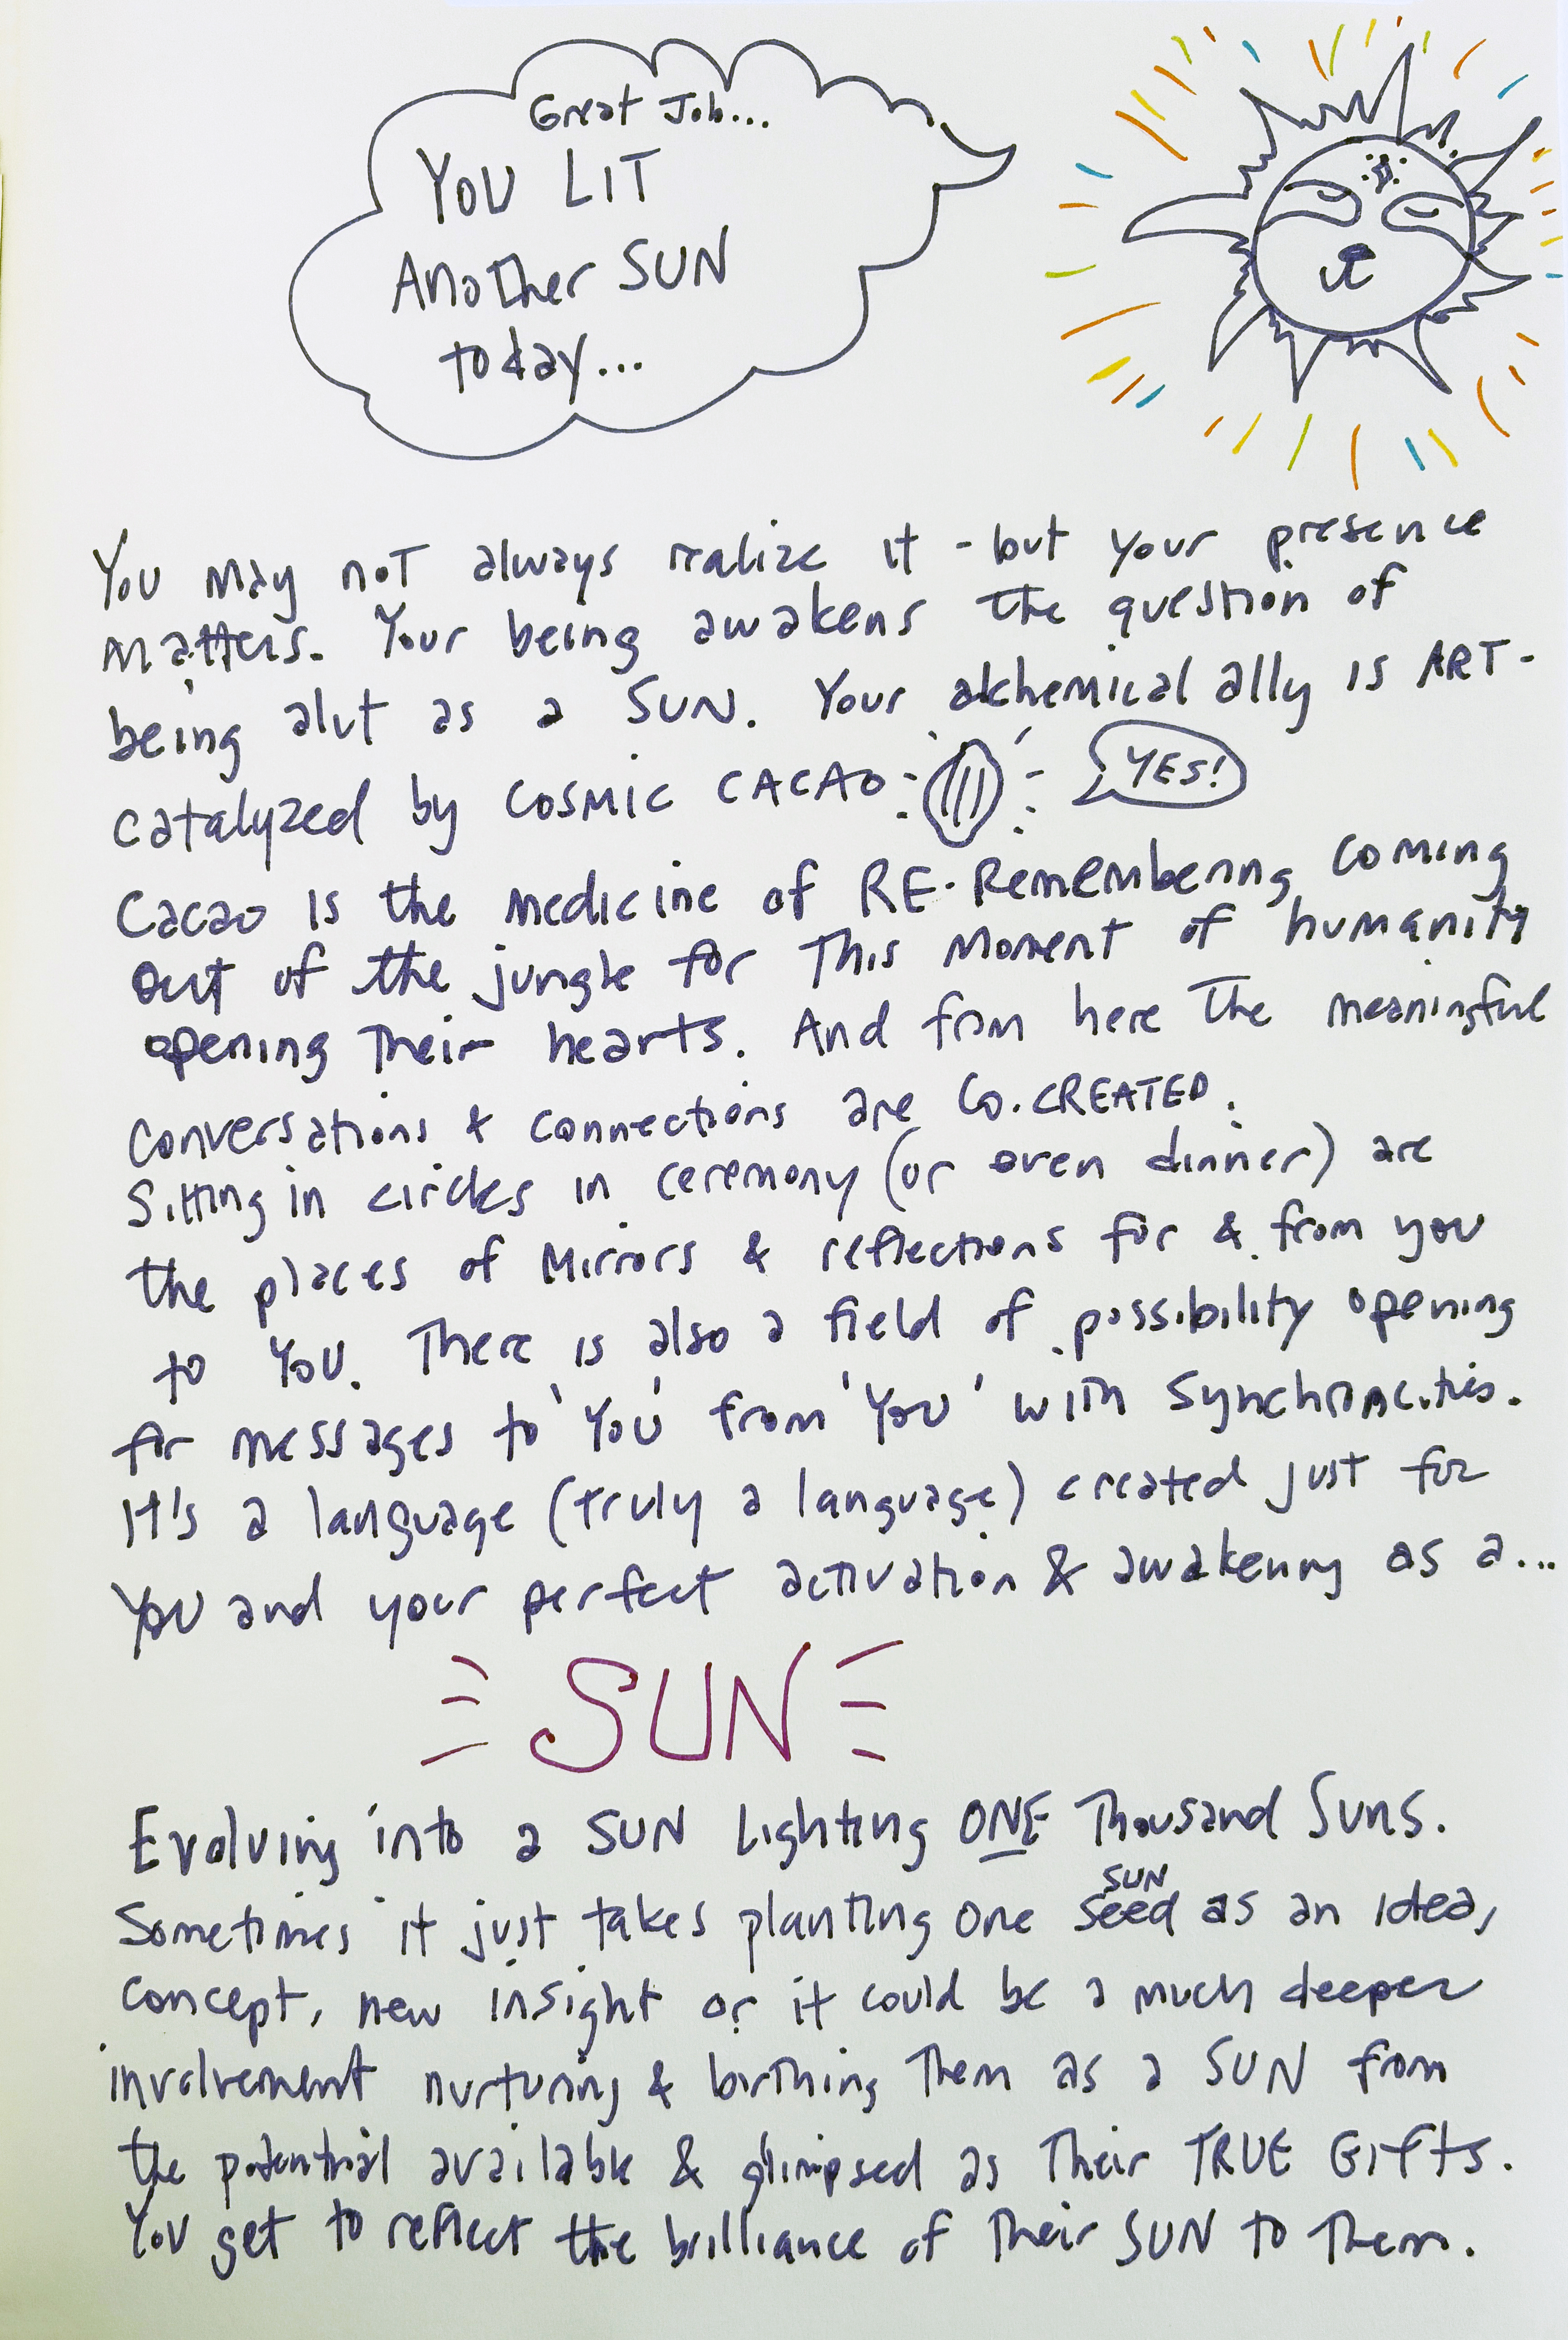 Great Job...
YOU LIT
Another SUN
today...
You may not always realize it - but your presence
matters. Your being awakens the question of
being alit as a SUN. Your alchemical ally is ART -
catalyzed by COSMIC CACAO
YES!
Cacao is the medicine of RE-Remembering coming
out of the jungle for This Moment of humanity
opening Their hearts. And from here The meaningful
conversations & connections are CO-CREATED.
Sitting in circles in ceremony (or even dinner) are
the places of Mirrors & reflections for & from you
to YOU. There is also a field of possibility opening
for messages to 'YOU' from 'YOU' with synchronicities.
It's a language (truly a language) created just for
You and your perfect activation & awakening as a...
SUN
Evolving into a SUN Lighting ONE Thousand Suns.
SUN
Sometimes it just takes planting one seed as an idea,
concept, new insight or it could be a much deeper
involvement nurturing & birthing Them as a SUN from
the potential available & glimpsed as Their TRUE GIFTS.
You get to reflect the brilliance of Their SUN to Them.